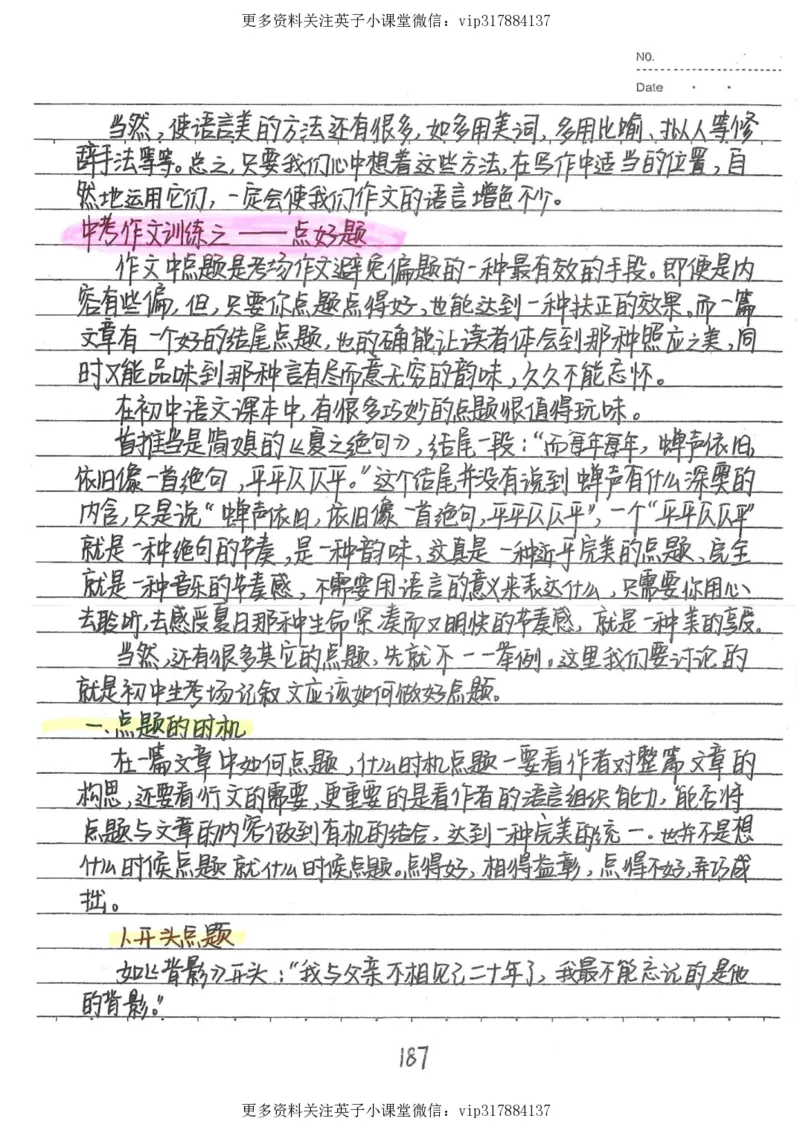 更多资料关注英子小课堂微信：vip317884137
NO.
Date
当然，使语言美的方法还有很多，如多用美词，多用比喻、拟人等修
辞手法等等。总之，只要我们心中想着这些方法，在写作中适当的位置，自
然地运用它们，一定会使我们作文的语言增色不少。
中考作文训练之——点好题
作文中点题是考场作文避免偏题的一种最有效的手段。即便是内
容有些偏，但，只要你点题点得好，也能达到一种扶正的效果。而一篇
文章有一个好的结尾点题，也的确能让读者体会到那种照应之美，同
时又能品味到那种言有尽而意无穷的韵味，久久不能忘怀。
在初中语文课本中，有很多巧妙的点题很值得玩味。
首推当是简媜的《夏之绝句》，结尾一段：“而每年每年，蝉声依旧，
依旧像一首绝句，平平仄仄平。”这个结尾并没有说到蝉声有什么深奥的
内含，只是说“蝉声依旧，依旧像一首绝句，平平仄仄平”，一个“平平仄仄平”
就是一种绝句的节奏，是一种韵味，这真是一种近乎完美的点题、完全
就是一种音乐的节奏感，不需要用语言的意义来表达什么，只需要你用心
去聆听，去感受夏日那种生命紧凑而又明快的节奏感，就是一种美的享受。
当然，还有很多其它的点题，先就不一一举例。这里我们要讨论的
就是初中生考场记叙文应该如何做好点题。
一、点题的时机
在一篇文章中如何点题，什么时机点题一要看作者对整篇文章的
构思，还要看行文的需要，更重要的是看作者的语言组织能力，能否将
点题与文章的内容做到有机的结合，达到一种完美的统一。也并不是想
什么时候点题就什么时候点题。点得好，相得益彰，点得不好，弄巧成
拙。
1.开头点题
如《背影》开头：“我与父亲不相见已二十年了，我最不能忘记的是他
的背影。”
187
更多资料关注英子小课堂微信：vip317884137